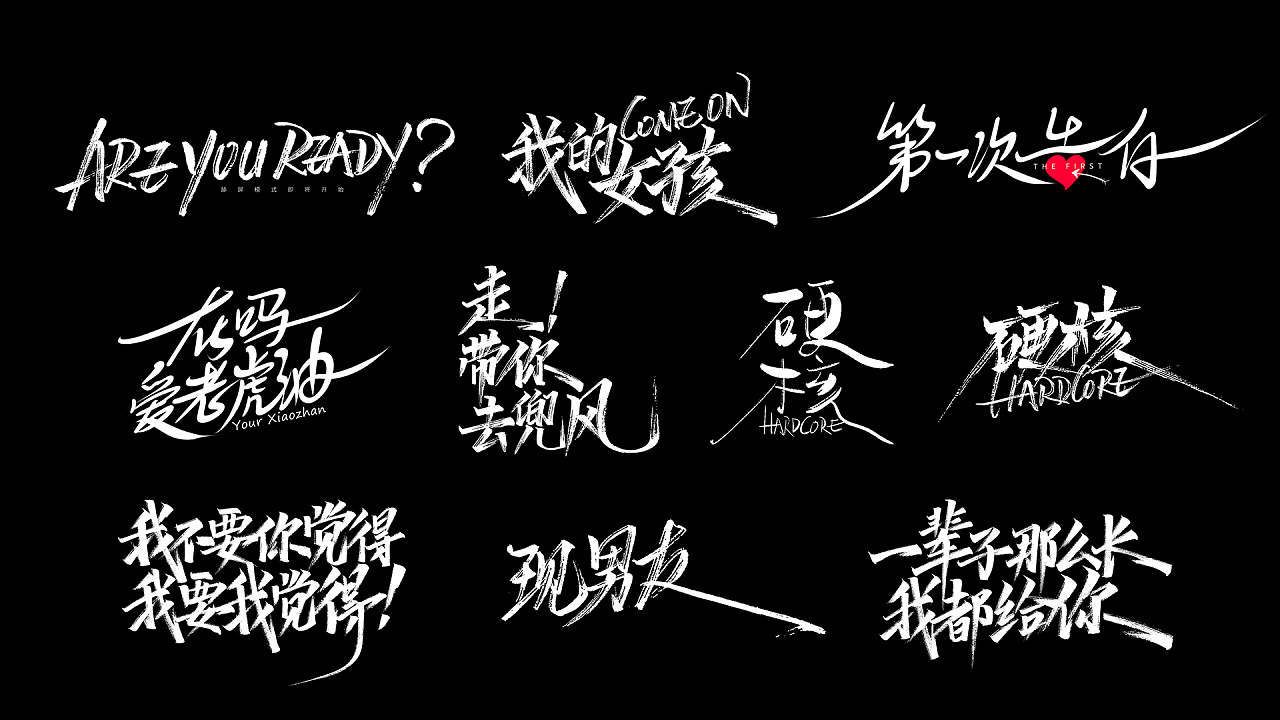 ARE YOU READY?
舔屏模式即将开始
COME ON
我的女孩
第一次告白
THE FIRST
在吗
爱老虎油
Your Xiaozhan
走！
带你
去兜风
硬
核
HARDCORE
硬核
HARDCORE
我不要你觉得
我要我觉得！
现男友
一辈子那么长
我都给你